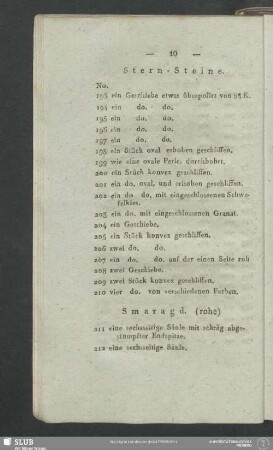 — 10 —
Stern-Steine.
No.
193 ein Geschiebe etwas überpolirt von K.
194 ein do. do.
195 ein do. do.
196 ein do. do.
197 ein do. do.
198 ein Stück oval erhoben geschliffen,
199 wie eine ovale Perle, durchbohrt,
200 ein Stück konvex geschliffen.
201 ein do. oval, und erhoben geschliffen.
202 ein do. do. mit eingeschlossenen Schwe-
felkies.
203 ein do. mit eingeschlossenen Granat.
204 ein Geschiebe,
205 ein Stück konvex geschliffen.
206 zwei do. do.
207 ein do. do. auf der einen Seite roh
208 zwei Geschiebe.
209 zwei Stück konvex geschliffen,
210 vier do. von verschiedenen Farben.
Smaragd. (rohe)
211 eine sechsseitige Säule mit schräg abge-
stumpfter Endspitze.
212 eine sechsseitige Säule,
SLUB
Wir führen Wissen.